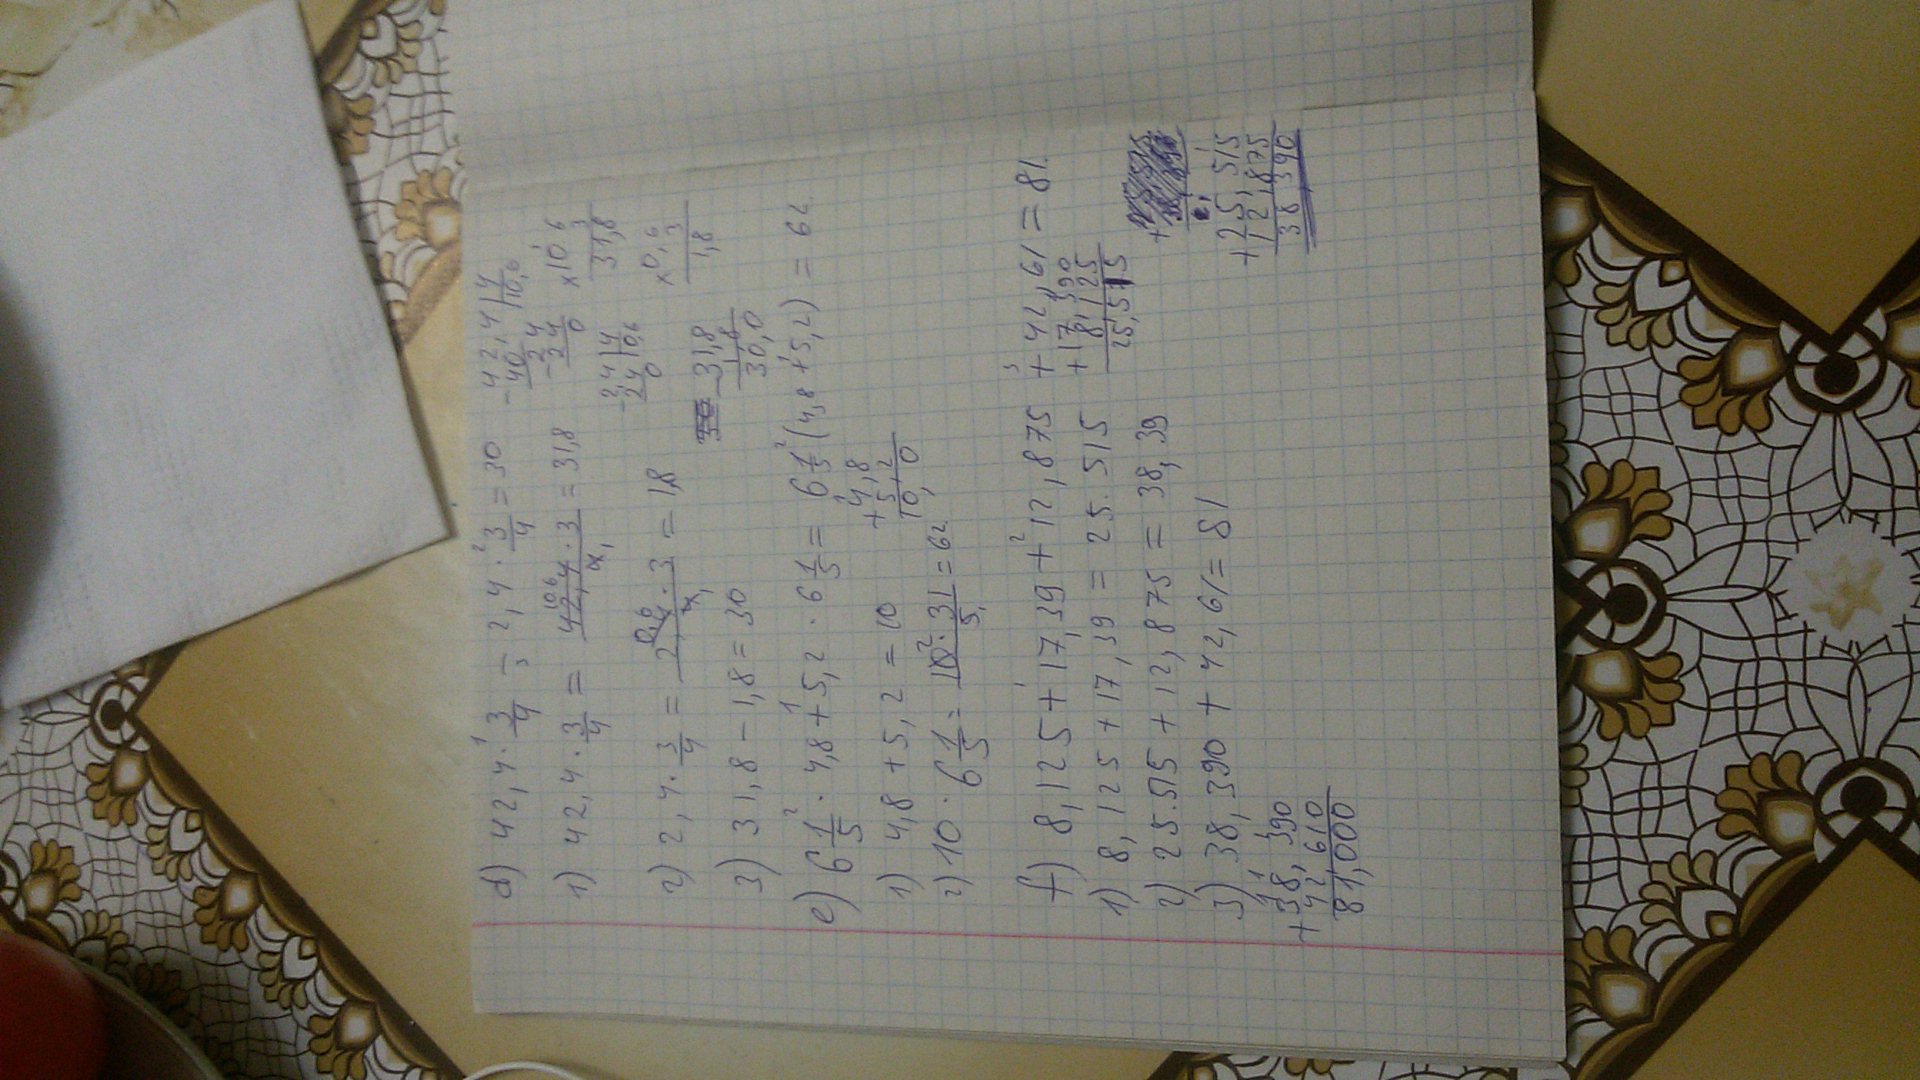 d) 42,4 · 3/4 - 2,4 · 3/4 = 30
1) 42,4 · 3/4 = 42,4 · 3 / 4 = 31,8
2) 2,4 · 3/4 = 2,4 · 3 / 4 = 1,8
3) 31,8 - 1,8 = 30
42,4 | 4
40 | 10,6
- 24
24
0
× 10,6
3
31,8
- 2,4 | 4
24 | 0,6
0
× 0,6
3
1,8
- 31,8
1,8
30,0
e) 6 1/5 · 4,8 + 5,2 · 6 1/5 = 6 1/5 (4,8 + 5,2) = 62
1) 4,8 + 5,2 = 10
+ 4,8
5,2
10,0
2) 10 · 6 1/5 = 10 · 31 / 5 = 62
f) 8,125 + 17,39 + 12,875 + 42,61 = 81.
1) 8,125 + 17,39 = 25.515
+ 17,390
8,125
25,515
2) 25.515 + 12,875 = 38,39
+ 25,515
12,875
38 390
3) 38,390 + 42,61 = 81
+ 38,390
42 610
81,000